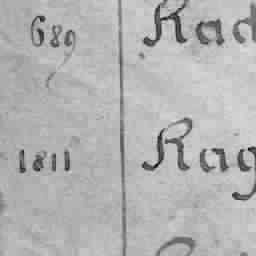 689 Rad
1811 Rag